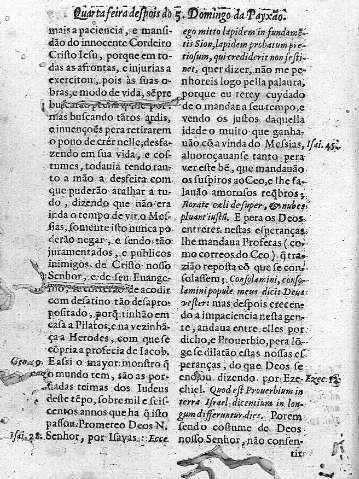 Quarta feira despois do 5. Domingo da Payxão.
mais a paciencia, e mansi-
dão do innocente Cordeiro
Cristo Iesu, porque em to-
das as afrontas, e injurias a
exercitou, pois às suas o-
bras, e modo de vida, sẽpre
mas buscando tãtos ardis,
e invenções pera retirarem
o povo de crér nelle, desfa-
zendo em sua vida, e cos-
tumes, todavia tendo tan-
to a mão a desfeita com
que puderão atalhar a tu-
do, dizendo que não era
inda o tempo de vir o Mes-
sias, somente isto nunca o
poderão negar, e sendo tão
juramentados, e publicos
inimigos de Cristo nosso
Senhor, e de seu Euange-
com desatino tão desapro-
positado, porq̃ tinhão em
casa a Pilatos, e na vezinhã-
ça a Herodes, com que se
cõpria a profecia de Iacob.
Gen. 49. E assi o mayor monstro q̃
o mundo tem, são as por-
fiadas teimas dos Iudeus
deste tẽpo, sobre mil e seis-
centos annos que ha q̃ isto
passou. Prometeo Deos N.
Isai. 28. Senhor, por Isayas: Ecce
ego mitto lapidem in fundamẽ-
tis Sion, lapidem probatum pre-
tiosum, qui crediderit non festi-
net, quer dizer, não me po-
nhoteis logo pella palaura,
porque eu terey cuydado
de o mandar a seu tempo, e
vendo os justos daquella
idade o muito que ganha-
uão cõ a vinda do Messias, Isai. 45.
aluoroçauanse tanto pera
ver este bẽ, que mandauão
os suspiros ao Ceo, e lhe fa-
lauão amorosos reqbros;
Rorate cæli desuper, & nubes
pluant iustũ. E pera os Deos
entreter nestas esperanças
lhe mandaua Profetas (co-
mo correos do Ceo) q̃ tra-
zião reposta cõ que se con-
solassem: Consolamini, conso-
lamini popule meus dicit Deus
vester: mas despois crecendo
a impaciencia nesta gen-
te, andaua entre elles por
dicho, e Prouerbio, pera lõ-
ge se dilatão estas nossas es-
peranças, do que Deos se
enojou dizendo por Eze- Ezec. 12.
chiel. Quod est Prouerbium in
terra Israel, dicentium in lon-
gum differuntur dies. Porem
sendo costume de Deos
nosso Senhor, não consen-
tir